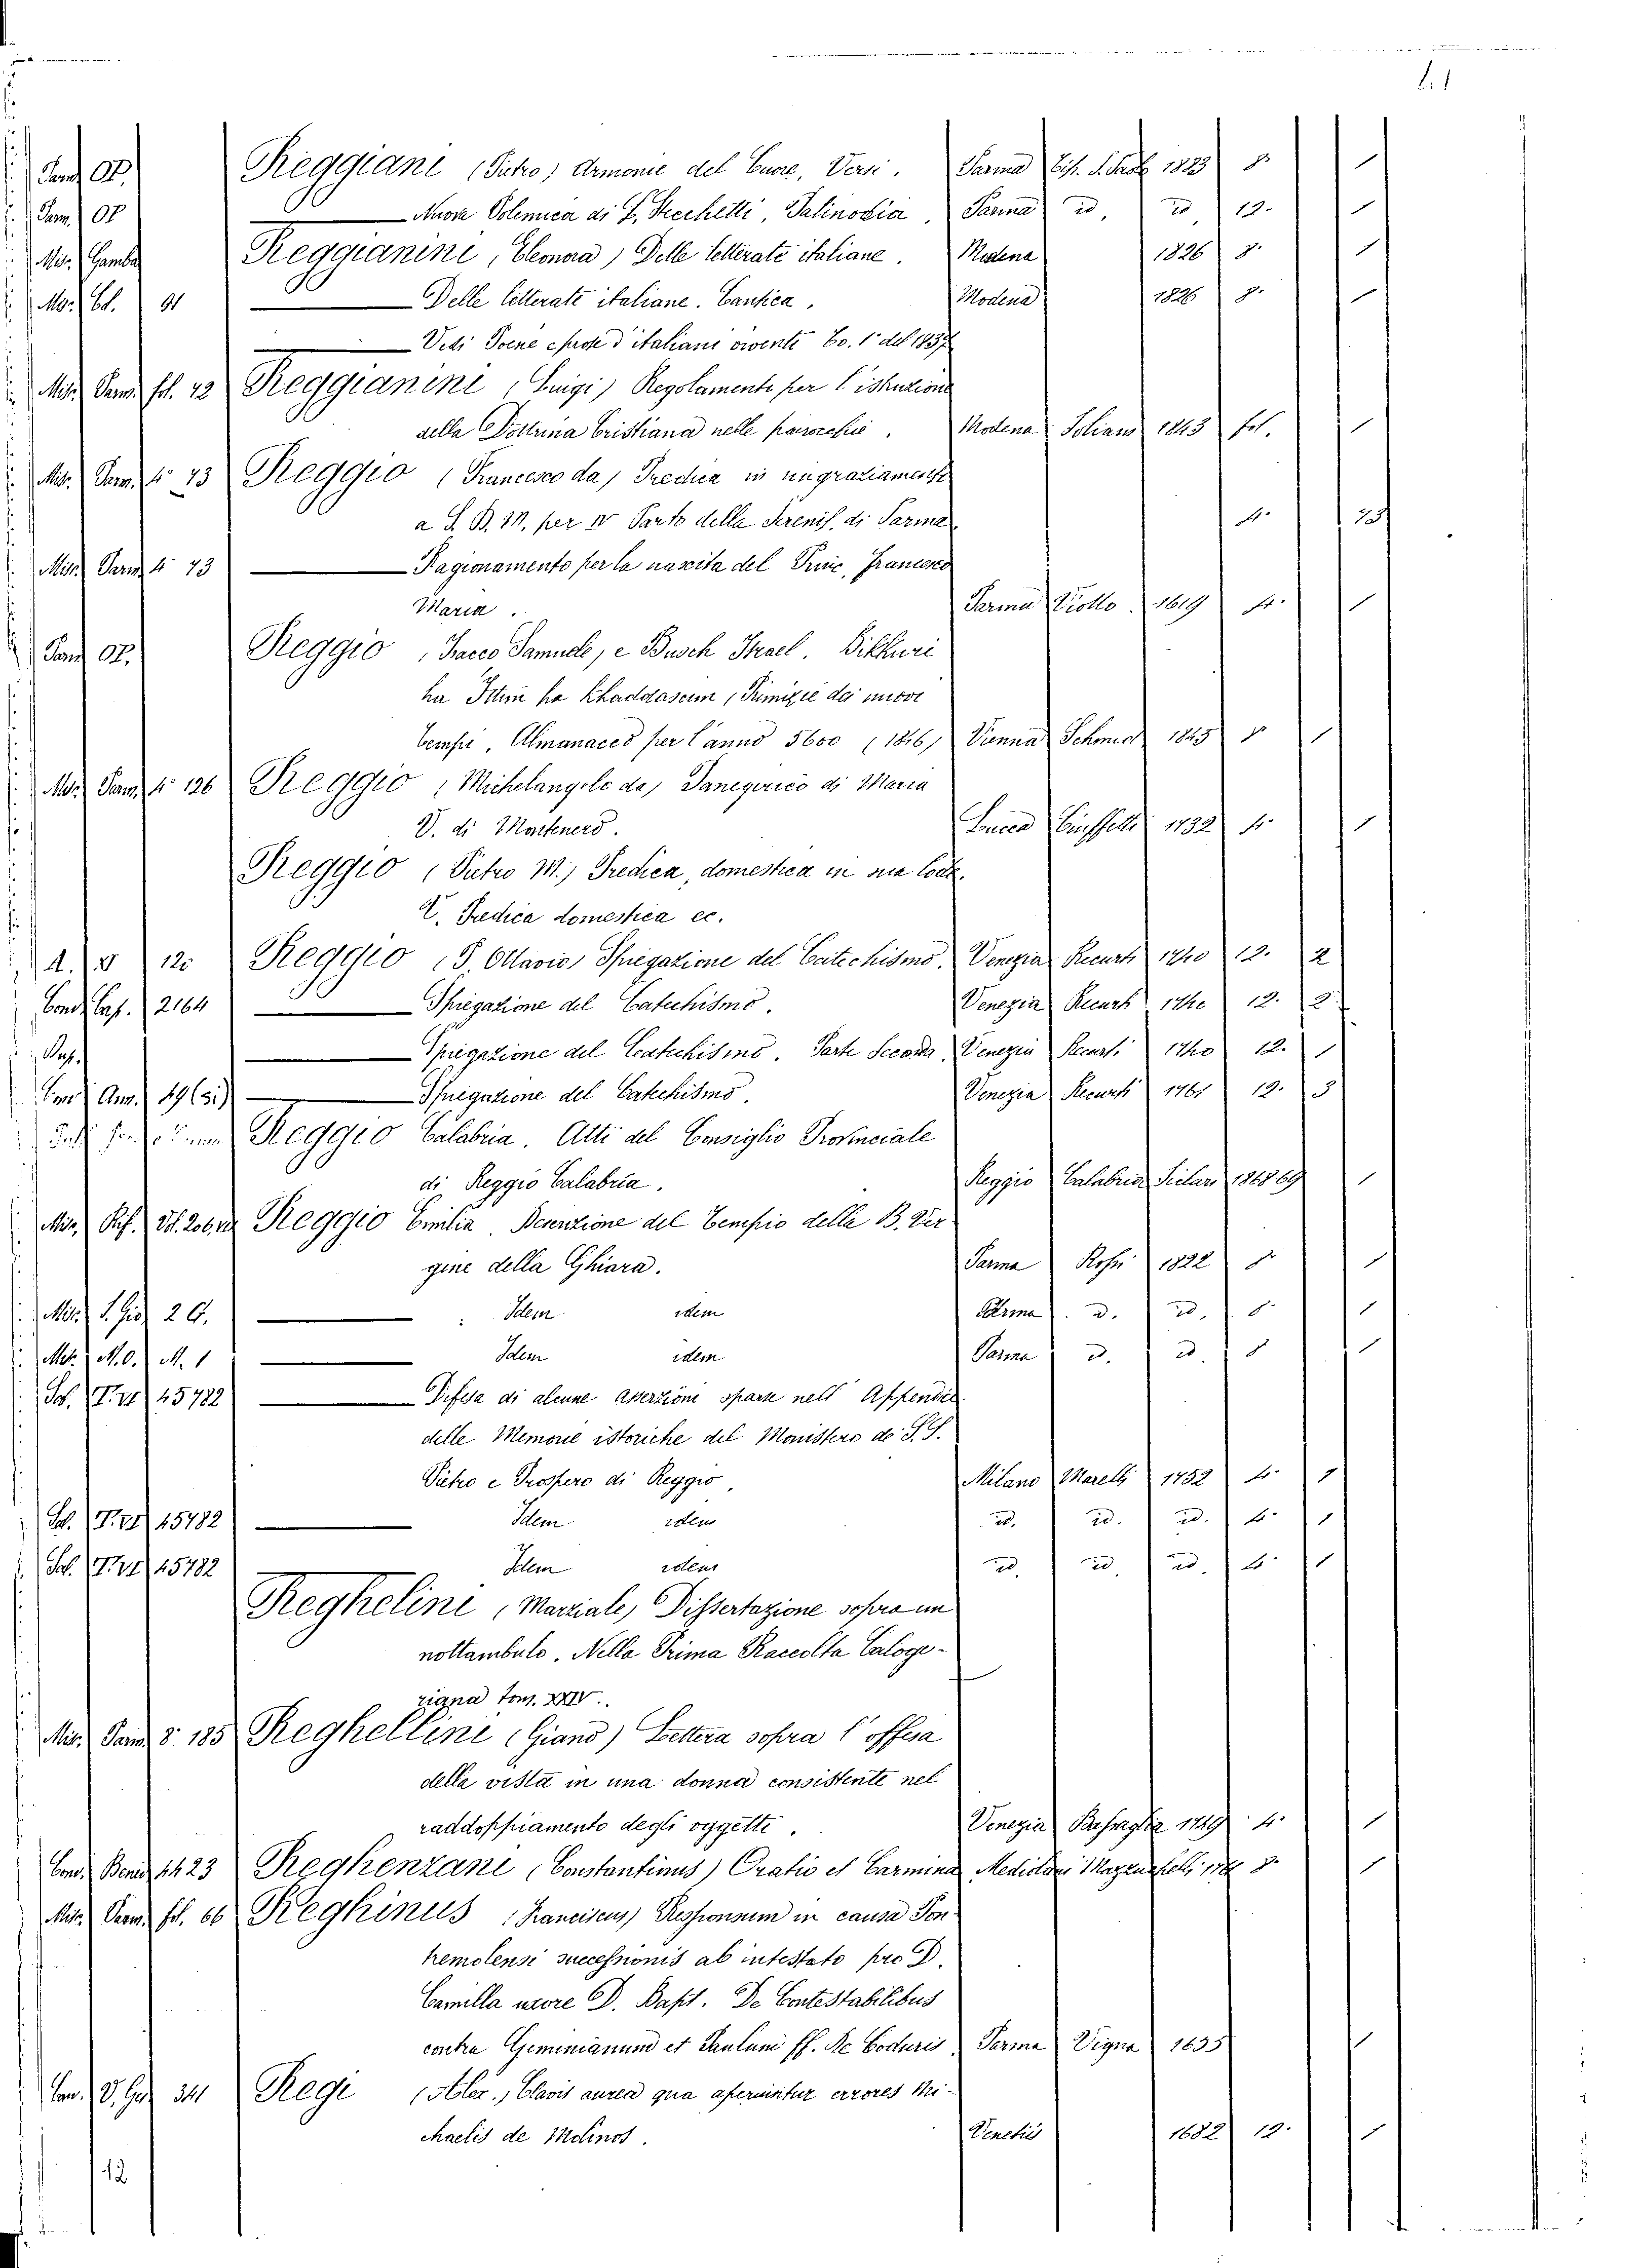 Parm. OP. Reggiani (Pietro) Armonie del Cuore, Versi. Parma Tip. 1883 8. 1
Parm. OP Nuova Polemica di L. Stecchetti, Palinodia. Parma id, id 12. 1
Mis. Gamba Reggianini, Eleonora) Delle letterate italiane. Modena 1826 8. 1
91 Delle letterate italiane. Cantica. Modena 1826 8. 1
Vedi Poesie e prose d'italiani viventi To. 1° del 1837
Mis. Parm. fol. 12 Reggianini (Luigi) Regolamento per l'istruzione
della Dottrina Cristiana nelle parrocchie. Modena Soliani 1843 fol. 1
Mis. Parm. 4° 13 Reggio (Francesco da) Predica in ringraziamento
a S. B. M. per il Parto della Sereniss. di Parma 4.
Mis. Parm. 4° 73 Ragionamento per la nascita del Princ. Francesco
Maria. Parma Viotto 1619 4. 1
Parm. OP. Reggio, Isacco Samuele, e Busch Israel. Bikkuri
ha Ittim ha Khaddascim (Primizie dei nuovi
tempi, Almanacco per l'anno 5600 (1846) Vienna Schmid 1845 8 1
Mis. Parm. 4° 126 Reggio (Michelangelo da) Panegirico di Maria
V. di Lucca 1732 4. 1
Reggio (Pietro M.) Predica, domestica in sua lode.
V. Predica domestica ec.
A. 120 Reggio (P. Ottavio) Spiegazione del Catechismo. Venezia Recurti 1740 12. 2
Cond. Cap. 2164 Spiegazione del Catechismo. Venezia Recurti 1740 12. 2
Cap. Spiegazione del Catechismo. Parte Seconda Venezia Recurti 1740 12. 1
Ann. 49 (31) Spiegazione del Catechismo. Venezia Recurti 1761 12. 3
Reggio Calabria. Atti del Consiglio Provinciale
di Reggio Calabria. Reggio Calabria Siclari 1868 69 1
Mis. Reggio Emilia. Descrizione del Tempio della B. Ver
gine della Ghiara. Parma Rossi 1822 8. 1
Mis. S. Gio. 20. Idem idem Parma id. id. 8. 1
Met. M.O. M. 1 Idem idem Parma id. id. 8 1
45782 Difesa di alcune asserzioni sparse nell' Appendice
delle Memorie istoriche del Monistero de' S.S.
Pietro e Prospero di Reggio. Milano Marelli 1752 4. 1
45782 Idem idem id. id. id. 4. 1
45782 Idem idem id. id. id. 4. 1
Reghelini (Marziale) Dissertazione sopra un
nottambulo. Nella Prima Raccolta Caloge-
riana tom. XXIV.
Mis. Parm. 8° 185 Reghellini (Giano) Lettera sopra l'offesa
della vista in una donna consistente nel
raddoppiamento degli oggetti. Venezia Bassaglia 1749 4. 1
Cond. 4423 Reghenzani (Constantinus) Oratio et Carmina Mediolani 8. 1
Mis. Parm. fol. 66 Reghinus (Franciscus) Responsum in causa Pon-
tremolensi successionis ab intestato pro D.
Camilla uxore D. Bapt. De Contestabilibus
contra Geminianum et Paulum ff. De Coduris. Parma Vigna 1635 1
341 Regi (Alex.) Clavis aurea qua aperiuntur errores Mi-
chaelis de Molinos. Venetiis 1682 12. 1
12